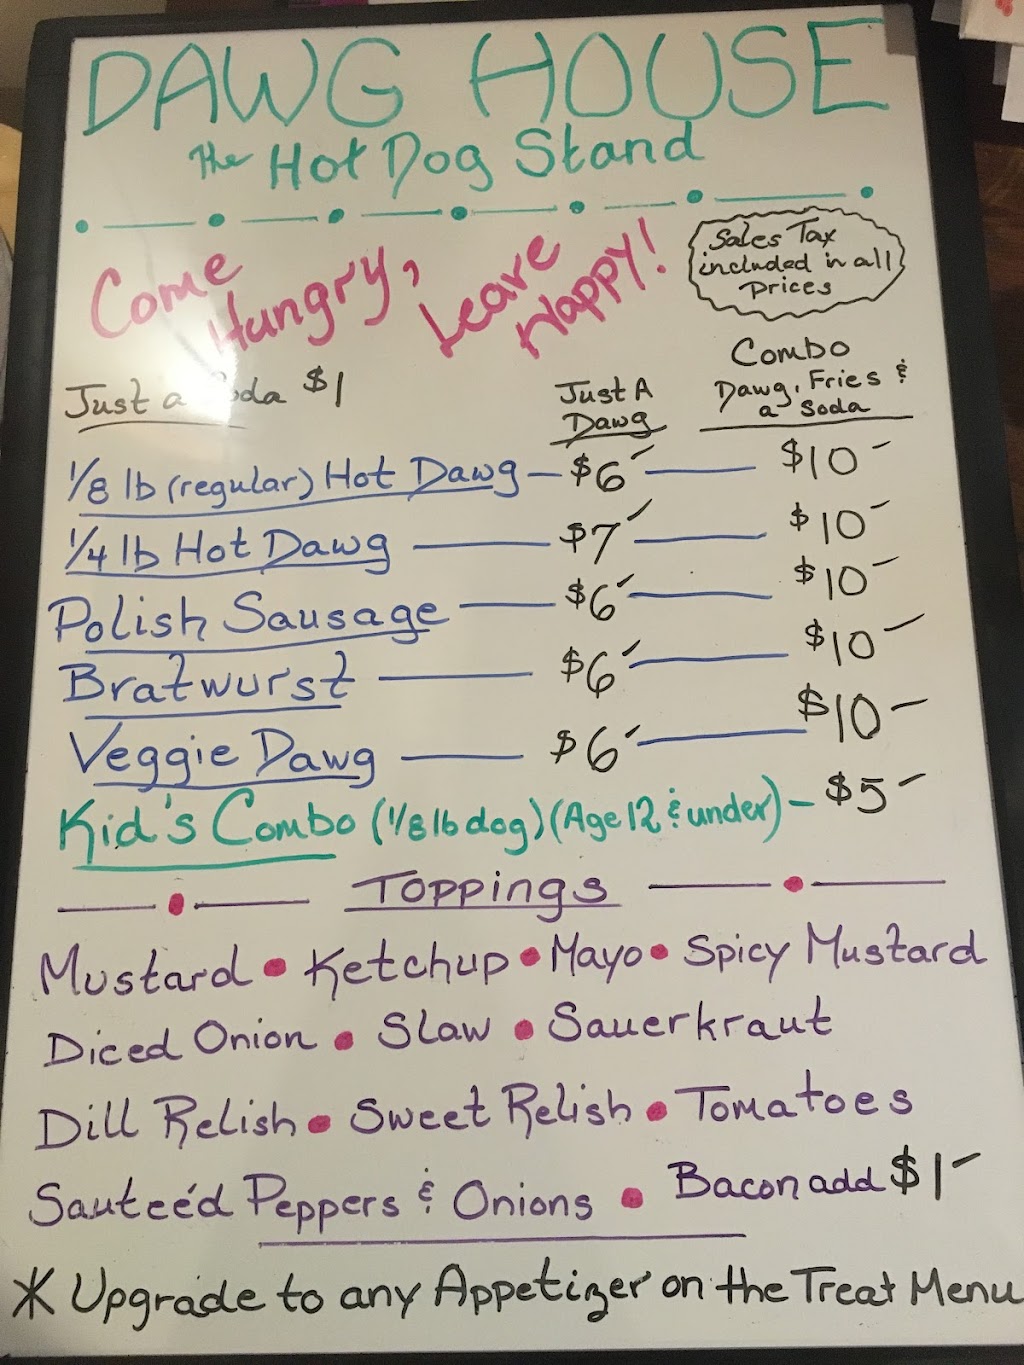 DAWG HOUSE
The Hot Dog Stand
Come Hungry, Leave Happy!
Sales Tax
included in all
prices
Just a Soda $1
Just A
Dawg
Combo
Dawg, Fries &
a Soda
1/8 lb (regular) Hot Dawg — $6 — $10
1/4 lb Hot Dawg — $7 — $10
Polish Sausage — $6 — $10
Bratwurst — $6 — $10
Veggie Dawg — $6 — $10
Kid's Combo (1/8 lb dog) (Age 12 & under) — $5
Toppings
Mustard • Ketchup • Mayo • Spicy Mustard
Diced Onion • Slaw • Sauerkraut
Dill Relish • Sweet Relish • Tomatoes
Sauteéd Peppers & Onions • Bacon add $1
* Upgrade to any Appetizer on the Treat Menu